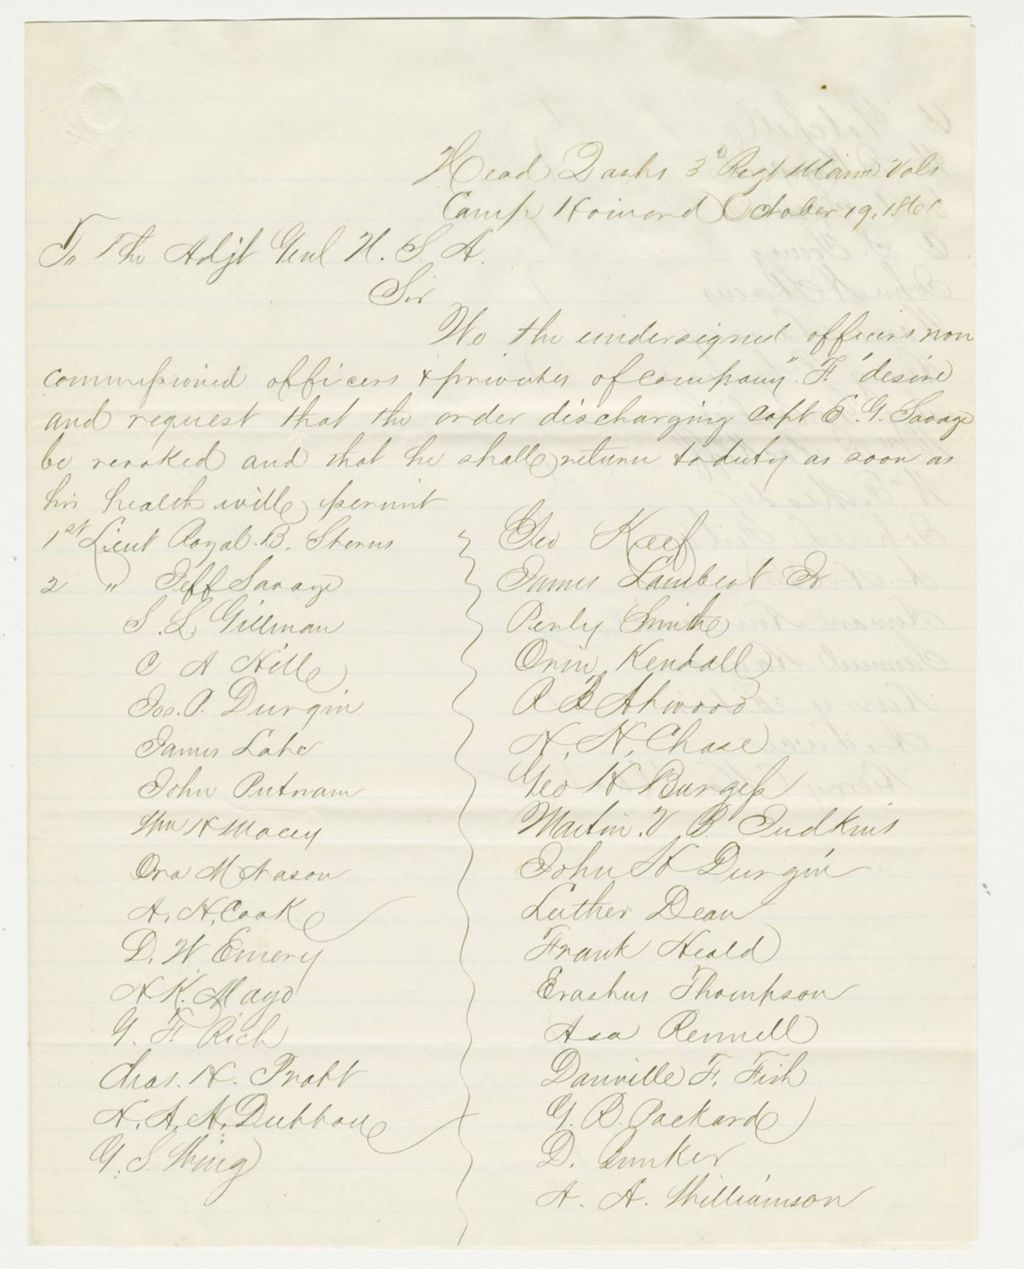 Head Quarters 3d Regt Maine Vols
Camp Howard October 19, 1861
To The Adjt Genl U. S. A.
Sir
We the undersigned officers non
commissioned officers & privates of company "F" desire
and request that the order discharging Capt E. G. Savage
be revoked and that he shall return to duty as soon as
his health will permit
1st Lieut Royal B. Sterns
2 " Jeff Savage
S. L. Gillman
C A Hill
Jos. P. Durgin
James Lake
John Putnam
Wm H Macey
Ora M Nason
A. N. Cook
D. W Emery
H K. Mayo
G. F. Rich
Chas. H. Pratt
G. S. Wing
Geo Keef
James Lambert Jr
Perly Smith
Orin Kendall
R B Atwood
H. N. Chase
Geo H Burgess
Martin V. B. Judkins
John H Durgin
Luther Dean
Frank Heald
Erastus Thompson
Asa
Danville F. Fish
G. B. Packard
D. Bunker
A. A. Williamson